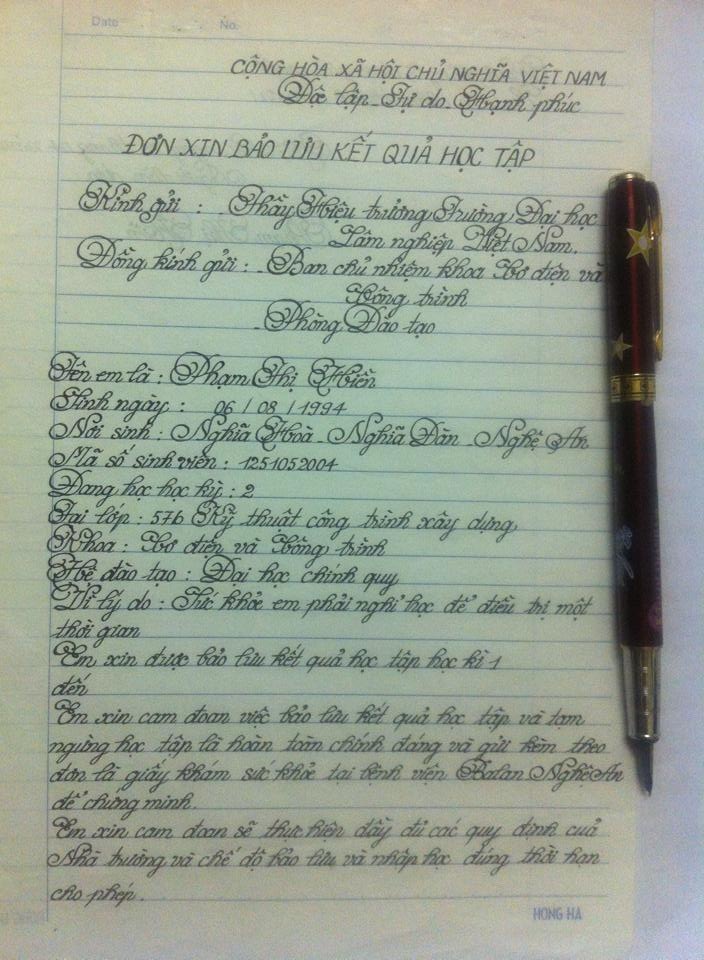 Date No.
CỘNG HÒA XÃ HỘI CHỦ NGHĨA VIỆT NAM
Độc lập - Tự do - Hạnh phúc
ĐƠN XIN BẢO LƯU KẾT QUẢ HỌC TẬP
Kính gửi : - Thầy Hiệu trưởng Trường Đại học
Lâm nghiệp Việt Nam.
Đồng kính gửi : - Ban chủ nhiệm khoa Cơ điện và
Công trình
- Phòng Đào tạo
Tên em là : Phạm Thị Hiền
Sinh ngày : 06 / 08 / 1994
Nơi sinh : Nghĩa Hoà - Nghĩa Đàn - Nghệ An
Mã số sinh viên : 1251052004
Đang học học kỳ : 2
Tại lớp : 57B Kỹ thuật công trình xây dựng
Khoa : Cơ điện và Công trình
Hệ đào tạo : Đại học chính quy
Vì lý do : Sức khỏe em phải nghỉ học để điều trị một
thời gian
Em xin được bảo lưu kết quả học tập học kì 1
đến
Em xin cam đoan việc bảo lưu kết quả học tập và tạm
ngừng học tập là hoàn toàn chính đáng và gửi kèm theo
đơn là giấy khám sức khỏe tại bệnh viện Balan Nghệ An
để chứng minh.
Em xin cam đoan sẽ thực hiện đầy đủ các quy định cuả
Nhà trường và chế độ bảo lưu và nhập học đúng thời hạn
cho phép.
HONG HA